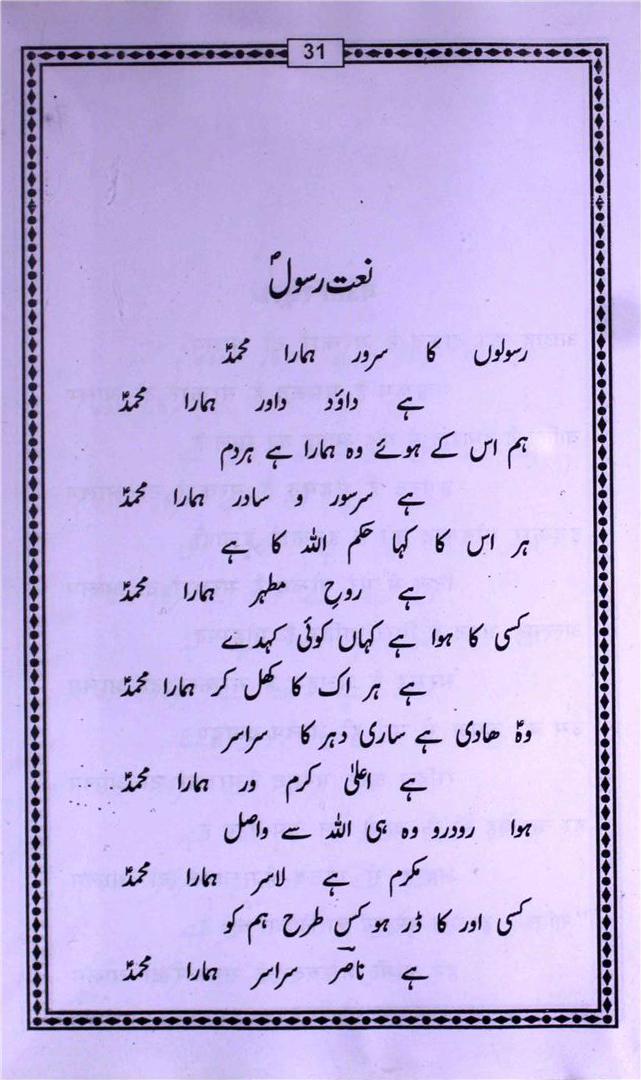 31
نعت رسولؐ
رسولوں کا سرور ہمارا محمدؐ
ہے داؤد داور ہمارا محمدؐ
ہم اس کے ہوئے وہ ہمارا ہے ہردم
ہے سرسور و سادر ہمارا محمدؐ
ہر اس کا کہا حکم اللہ کا ہے
ہے روح مطہر ہمارا محمدؐ
کسی کا ہوا ہے کہاں کوئی کہدے
ہے ہر اک کا کھل کر ہمارا محمدؐ
وہؐ ھادی ہے ساری دہر کا سراسر
ہے اعلیٰ کرم ور ہمارا محمدؐ
ہوا رودرو وہ ہی اللہ سے واصل
مکرم ہے لاسر ہمارا محمدؐ
کسی اور کا ڈر ہو کس طرح ہم کو
ہے ناصر سراسر ہمارا محمدؐ